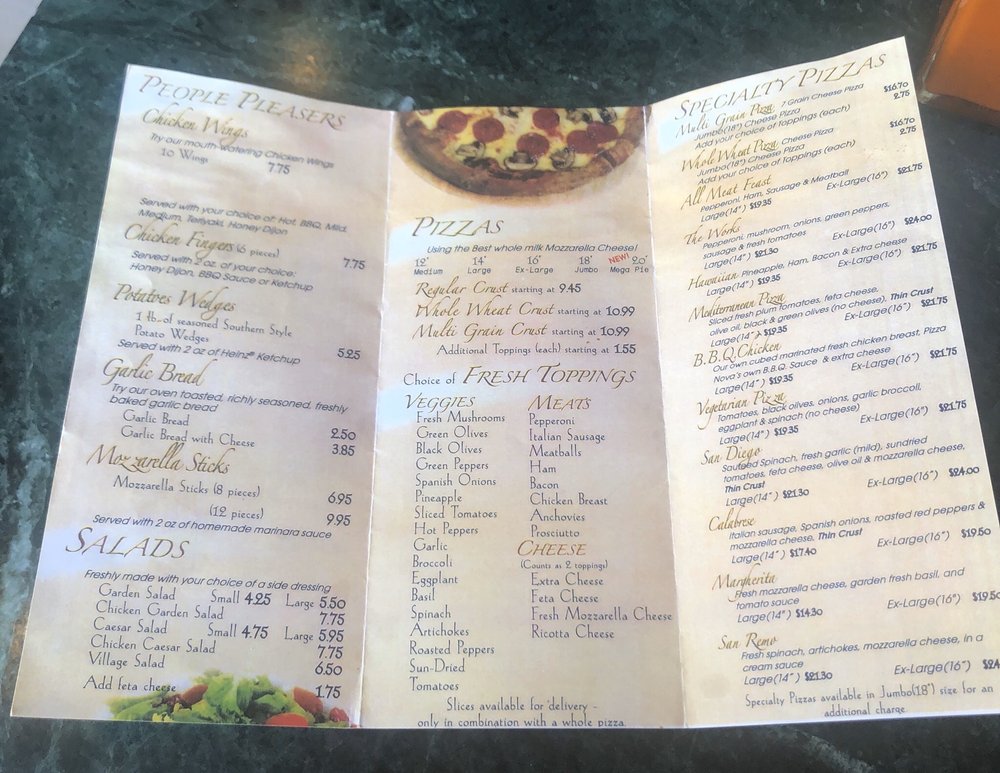 PEOPLE PLEASERS
Chicken Wings
Try our mouth-watering Chicken Wings
10 Wings 7.75
Served with your choice of Hot, BBQ, Mild,
Medium, Teriyaki, Honey Dijon
Chicken Fingers (6 pieces) 7.75
Served with 2 oz. of your choice:
Honey Dijon, BBQ Sauce or Ketchup
Potatoes Wedges
1 lb. of seasoned Southern Style
Potato Wedges 5.25
Served with 2 oz of Heinz® Ketchup
Garlic Bread
Try our oven toasted, richly seasoned, freshly
baked garlic bread
Garlic Bread 2.50
Garlic Bread with Cheese 3.85
Mozzarella Sticks
Mozzarella Sticks (8 pieces) 6.95
(12 pieces) 9.95
Served with 2 oz of homemade marinara sauce
SALADS
Freshly made with your choice of a side dressing
Garden Salad Small 4.25 Large 5.50
Chicken Garden Salad 7.75
Caesar Salad Small 4.75 Large 5.95
Chicken Caesar Salad 7.75
Village Salad 6.50
Add feta cheese 1.75
PIZZAS
Using the Best whole milk Mozzarella Cheese!
12" 14" 16" 18" NEW! 20"
Medium Large Ex-Large Jumbo Mega Pie
Regular Crust starting at 9.45
Whole Wheat Crust starting at 10.99
Multi Grain Crust starting at 10.99
Additional Toppings (each) starting at 1.55
Choice of FRESH TOPPINGS
VEGGIES
Fresh Mushrooms
Green Olives
Black Olives
Green Peppers
Spanish Onions
Pineapple
Sliced Tomatoes
Hot Peppers
Garlic
Broccoli
Eggplant
Basil
Spinach
Artichokes
Roasted Peppers
Sun-Dried
Tomatoes
MEATS
Pepperoni
Italian Sausage
Meatballs
Ham
Bacon
Chicken Breast
Anchovies
Prosciutto
CHEESE
(Counts as 2 toppings)
Extra Cheese
Feta Cheese
Fresh Mozzarella Cheese
Ricotta Cheese
Slices available for delivery -
only in combination with a whole pizza.
SPECIALTY PIZZAS
Multi Grain Pizza 7 Grain Cheese Pizza
Jumbo(18") Cheese Pizza $16.70
Add your choice of toppings (each) 2.75
Whole Wheat Pizza Cheese Pizza
Jumbo(18") Cheese Pizza $16.70
Add your choice of toppings (each) 2.75
All Meat Feast
Pepperoni, Ham, Sausage & Meatball
Large(14") $19.35 Ex-Large(16") $21.75
The Works
Pepperoni, mushroom, onions, green peppers,
sausage & fresh tomatoes
Large(14") $21.30 Ex-Large(16") $24.00
Hawaiian Pineapple, Ham, Bacon & Extra cheese
Large(14") $19.35 Ex-Large(16") $21.75
Mediterranean Pizza
Sliced fresh plum tomatoes, feta cheese,
olive oil, black & green olives (no cheese), Thin Crust
Large(14") $19.35 Ex-Large(16") $21.75
B.B.Q. Chicken
Our own cubed marinated fresh chicken breast, Pizza
Nova's own B.B.Q. Sauce & extra cheese
Large(14") $19.35 Ex-Large(16") $21.75
Vegetarian Pizza
Tomatoes, black olives, onions, garlic broccoli,
eggplant & spinach (no cheese)
Large(14") $19.35 Ex-Large(16") $21.75
San Diego
Sauteed Spinach, fresh garlic (mild), sundried
tomatoes, feta cheese, olive oil & mozzarella cheese,
Thin Crust
Large(14") $21.30 Ex-Large(16") $24.00
Calabrese
Italian sausage, Spanish onions, roasted red peppers &
mozzarella cheese, Thin Crust
Large(14") $17.40 Ex-Large(16") $19.50
Margherita
Fresh mozzarella cheese, garden fresh basil, and
tomato sauce
Large(14") $14.30 Ex-Large(16") $19.50
San Remo
Fresh spinach, artichokes, mozzarella cheese, in a
cream sauce
Large(14") $21.30 Ex-Large(16") $24
Specialty Pizzas available in Jumbo(18") size for an
additional charge.